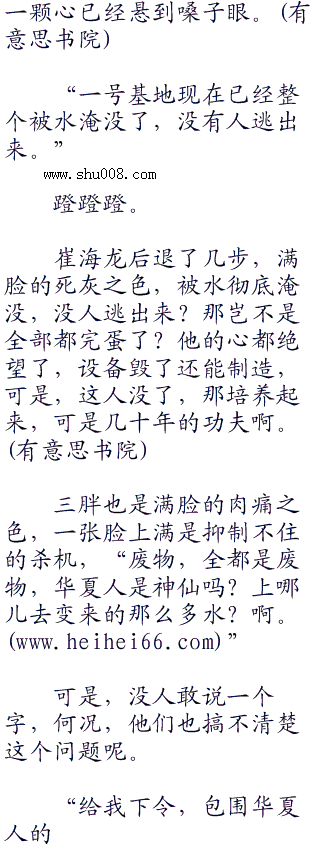 一颗心已经悬到嗓子眼。(有
意思书院)
“一号基地现在已经整
个被水淹没了，没有人逃出
来。”
www.shu008.com
蹬蹬蹬。
崔海龙后退了几步，满
脸的死灰之色，被水彻底淹
没，没人逃出来？那岂不是
全部都完蛋了？他的心都绝
望了，设备毁了还能制造，
可是，这人没了，那培养起
来，可是几十年的功夫啊。
(有意思书院)
三胖也是满脸的肉痛之
色，一张脸上满是抑制不住
的杀机，“废物，全都是废
物，华夏人是神仙吗？上哪
儿去变来的那么多水？啊。
(www.heihei66.com)”
可是，没人敢说一个
字，何况，他们也搞不清楚
这个问题呢。
“给我下令，包围华夏
人的